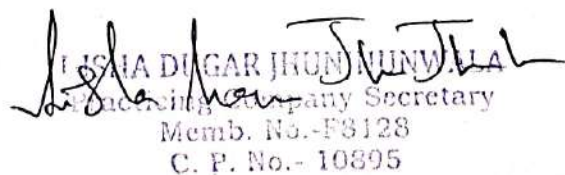 DUGAR JHUNJHUNWALA
Practicing Company Secretary
Memb. No.-F8128
C. P. No.- 10895